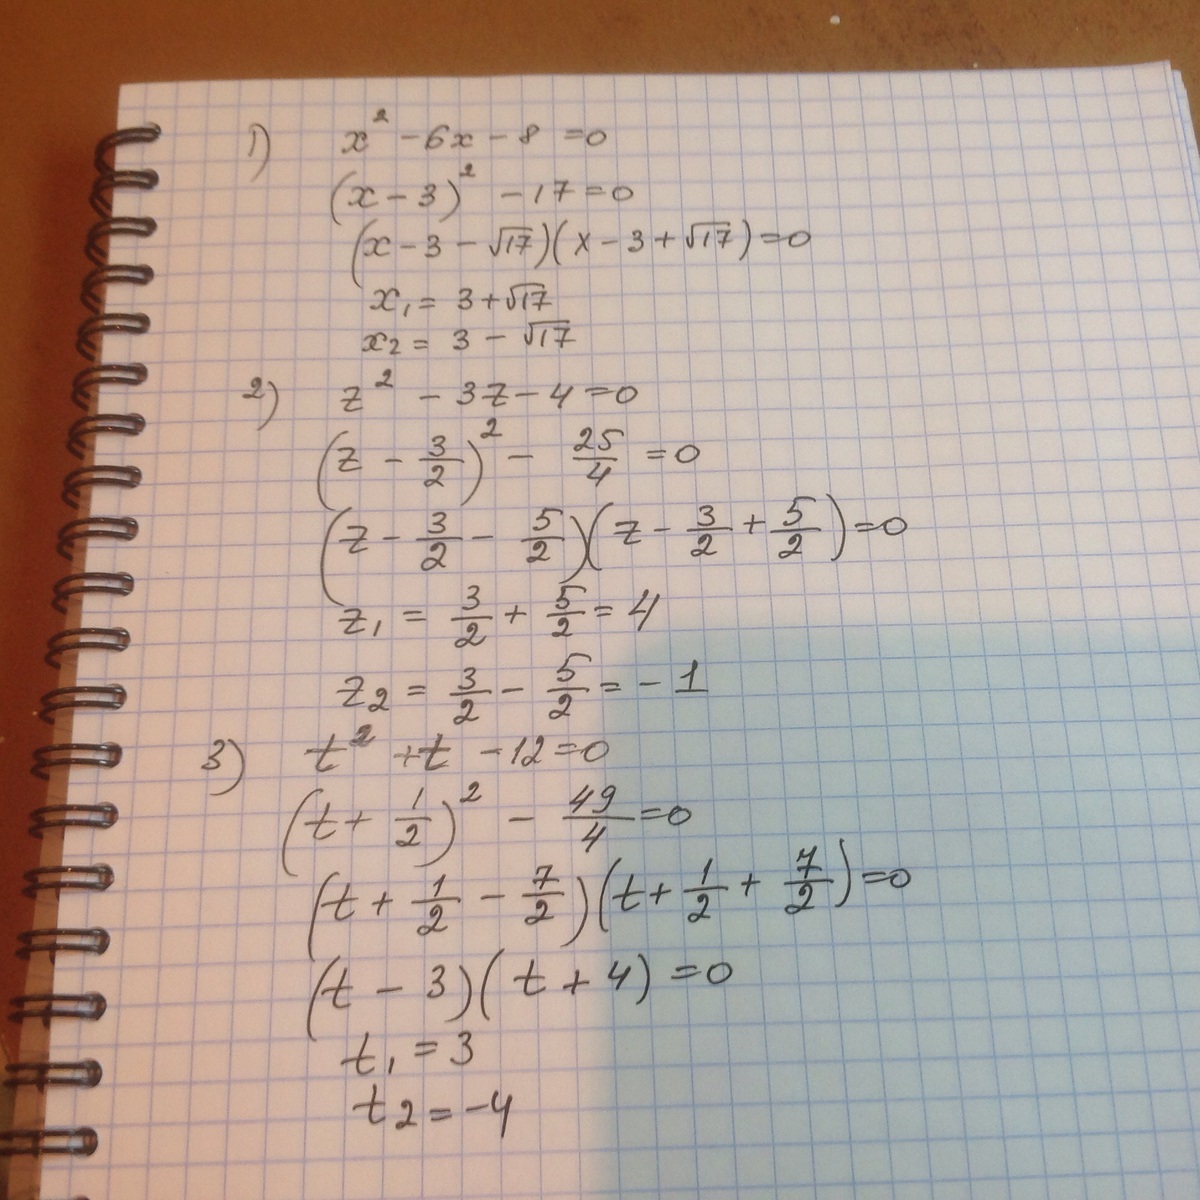 1) x² - 6x - 8 = 0
(x - 3)² - 17 = 0
(x - 3 - √17)(x - 3 + √17) = 0
x₁ = 3 + √17
x₂ = 3 - √17
2) z² - 3z - 4 = 0
(z - 3/2)² - 25/4 = 0
(z - 3/2 - 5/2)(z - 3/2 + 5/2) = 0
z₁ = 3/2 + 5/2 = 4
z₂ = 3/2 - 5/2 = -1
3) t² + t - 12 = 0
(t + 1/2)² - 49/4 = 0
(t + 1/2 - 7/2)(t + 1/2 + 7/2) = 0
(t - 3)(t + 4) = 0
t₁ = 3
t₂ = -4